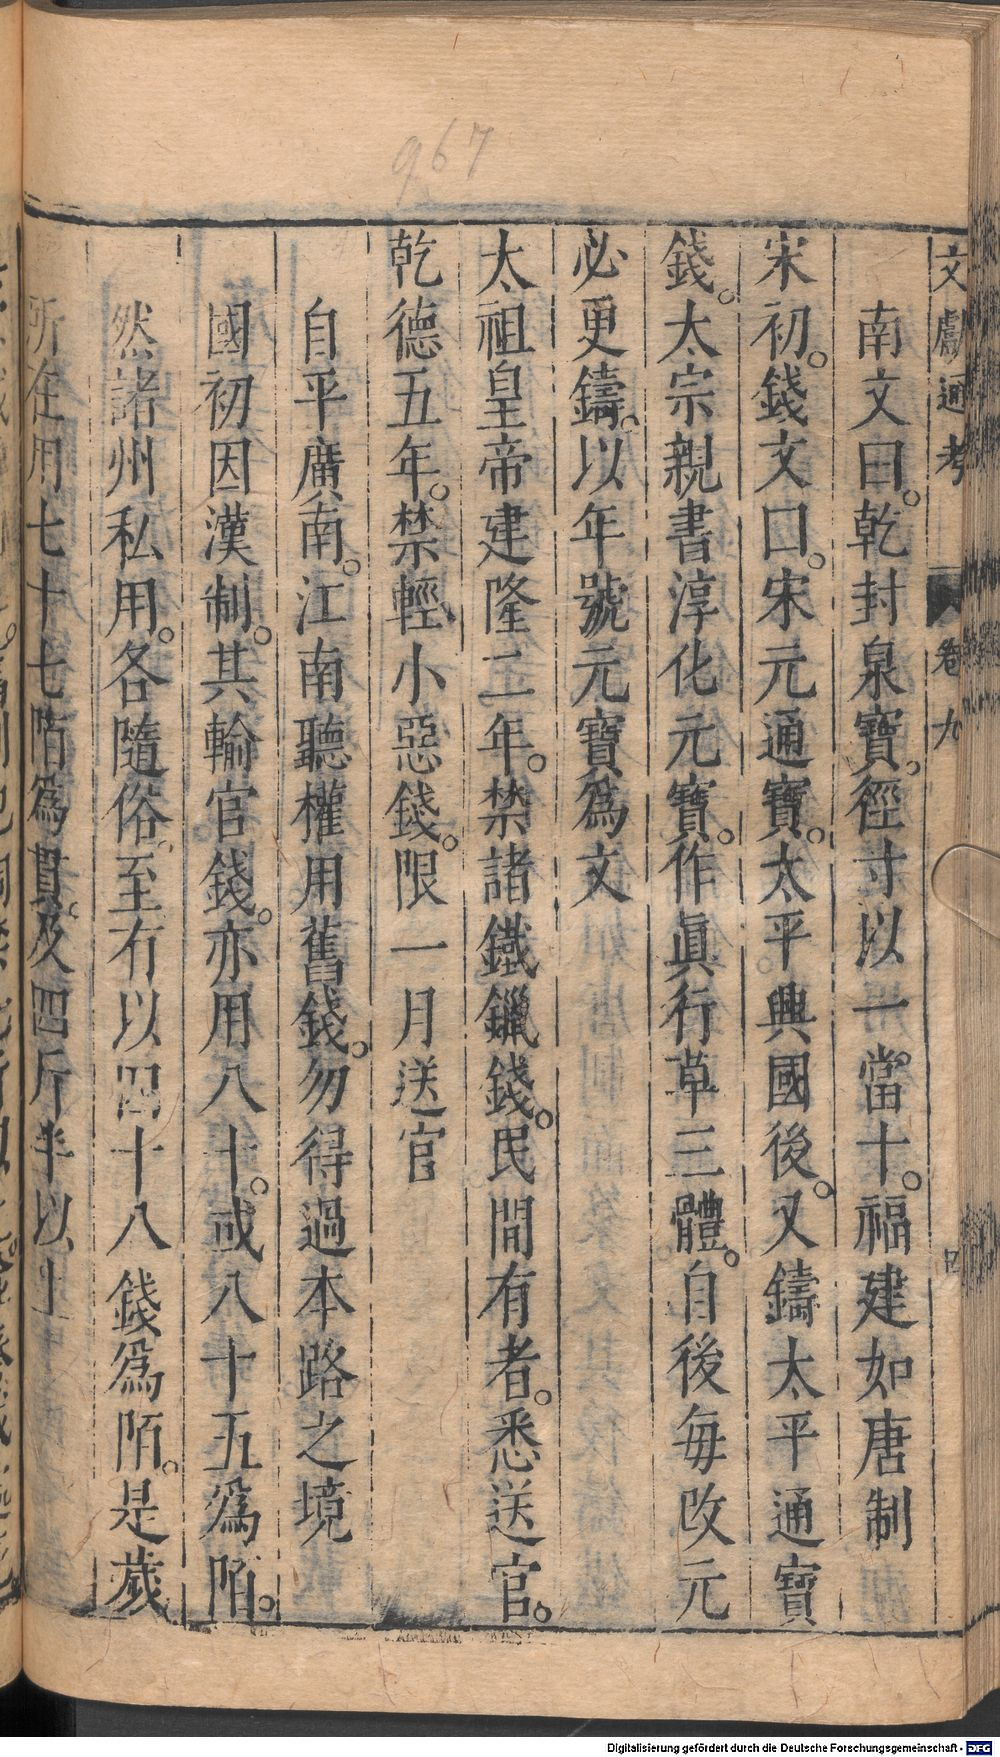 967
文獻通考 卷九 四
南文曰。乾封泉寶。徑寸以一當十。福建如唐制
宋初。錢文曰。宋元通寶。太平興國後。又鑄太平通寶
錢。太宗親書淳化元寶。作眞行草三體。自後每改元
必更鑄。以年號元寶爲文
太祖皇帝建隆二年。禁諸鐵鑞錢。民間有者。悉送官。
乾德五年。禁輕小惡錢。限一月送官
自平廣南。江南聽權用舊錢。勿得過本路之境
國初因漢制。其輸官錢。亦用八十。或八十五爲陌。
然諸州私用。各隨俗。至有以四十八錢爲陌。是歲
所在用七十七陌爲貫。及四斤半以上
Digitalisierung gefördert durch die Deutsche Forschungsgemeinschaft - DFG